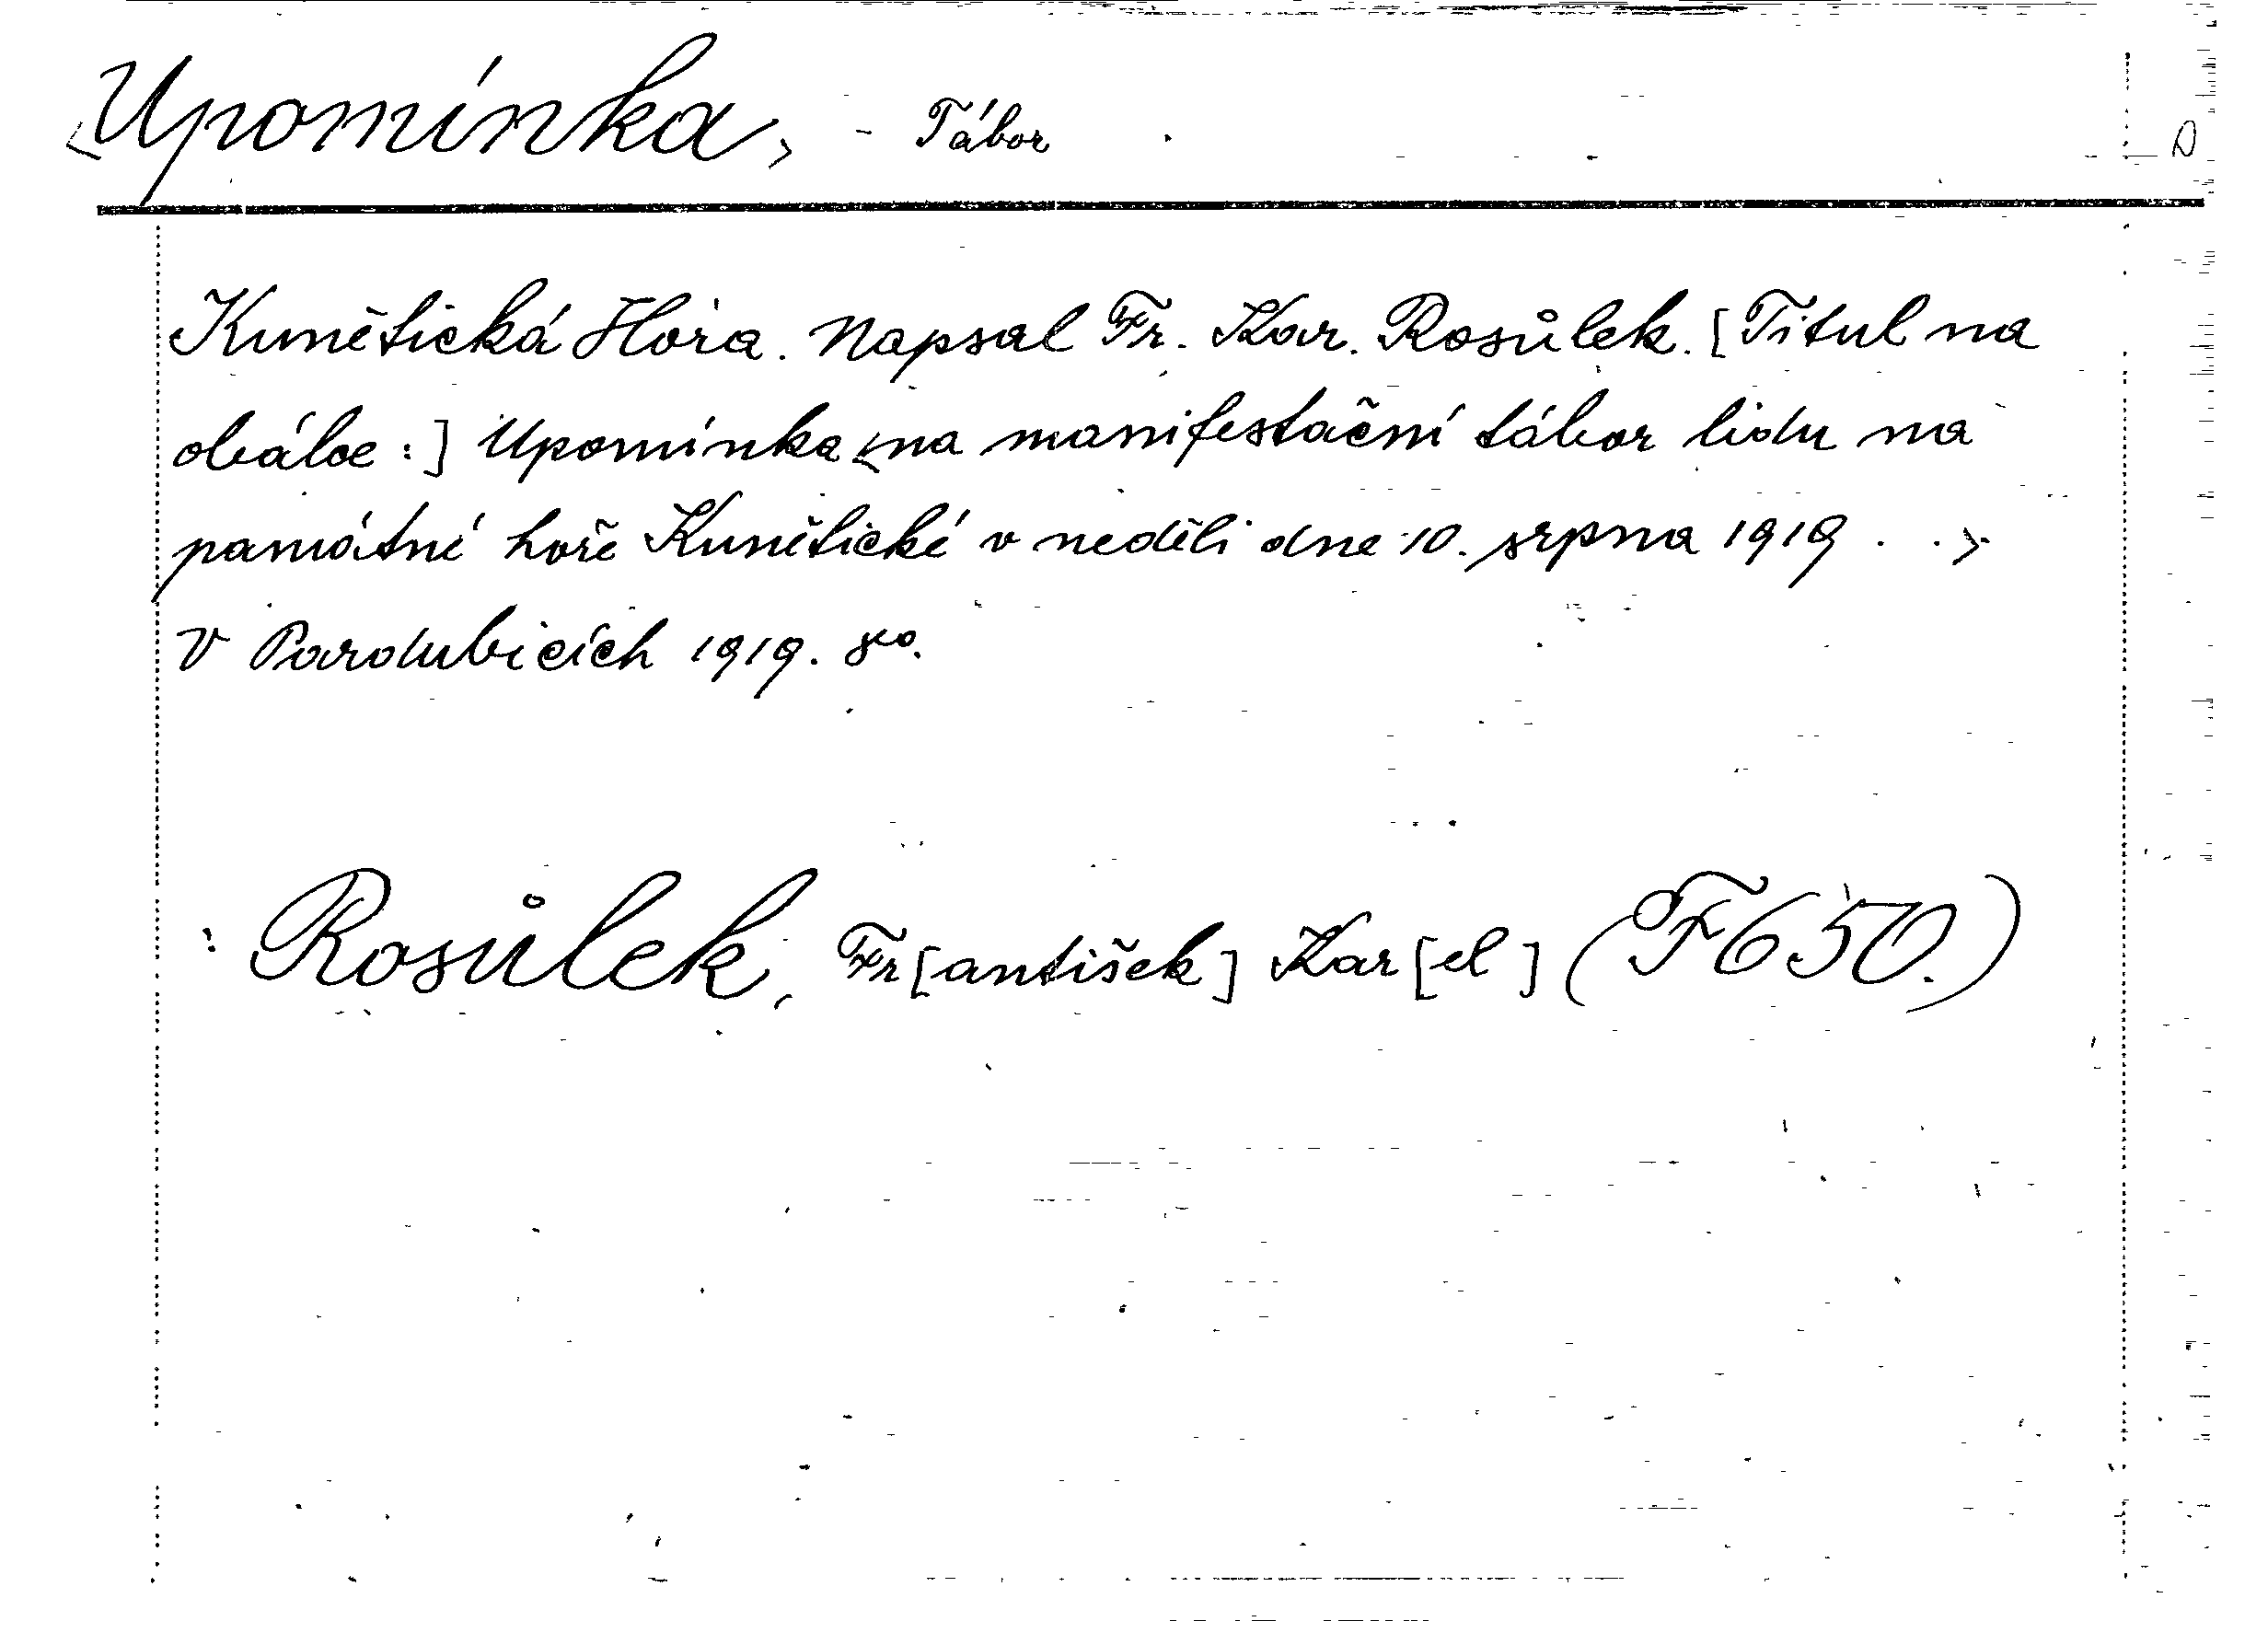 <Upomínka> - Tábor D
Kunětická Hora. Napsal Fr. Kar. Rosůlek. [Titul na
obálce:] Upomínka <na manifestační tábor lidu na
památné hoře Kunětické v neděli dne 10. srpna 1919 . .>
V Pardubicích 1919. 8o.
: Rosůlek, Fr[antišek] Kar[el] (F650.)